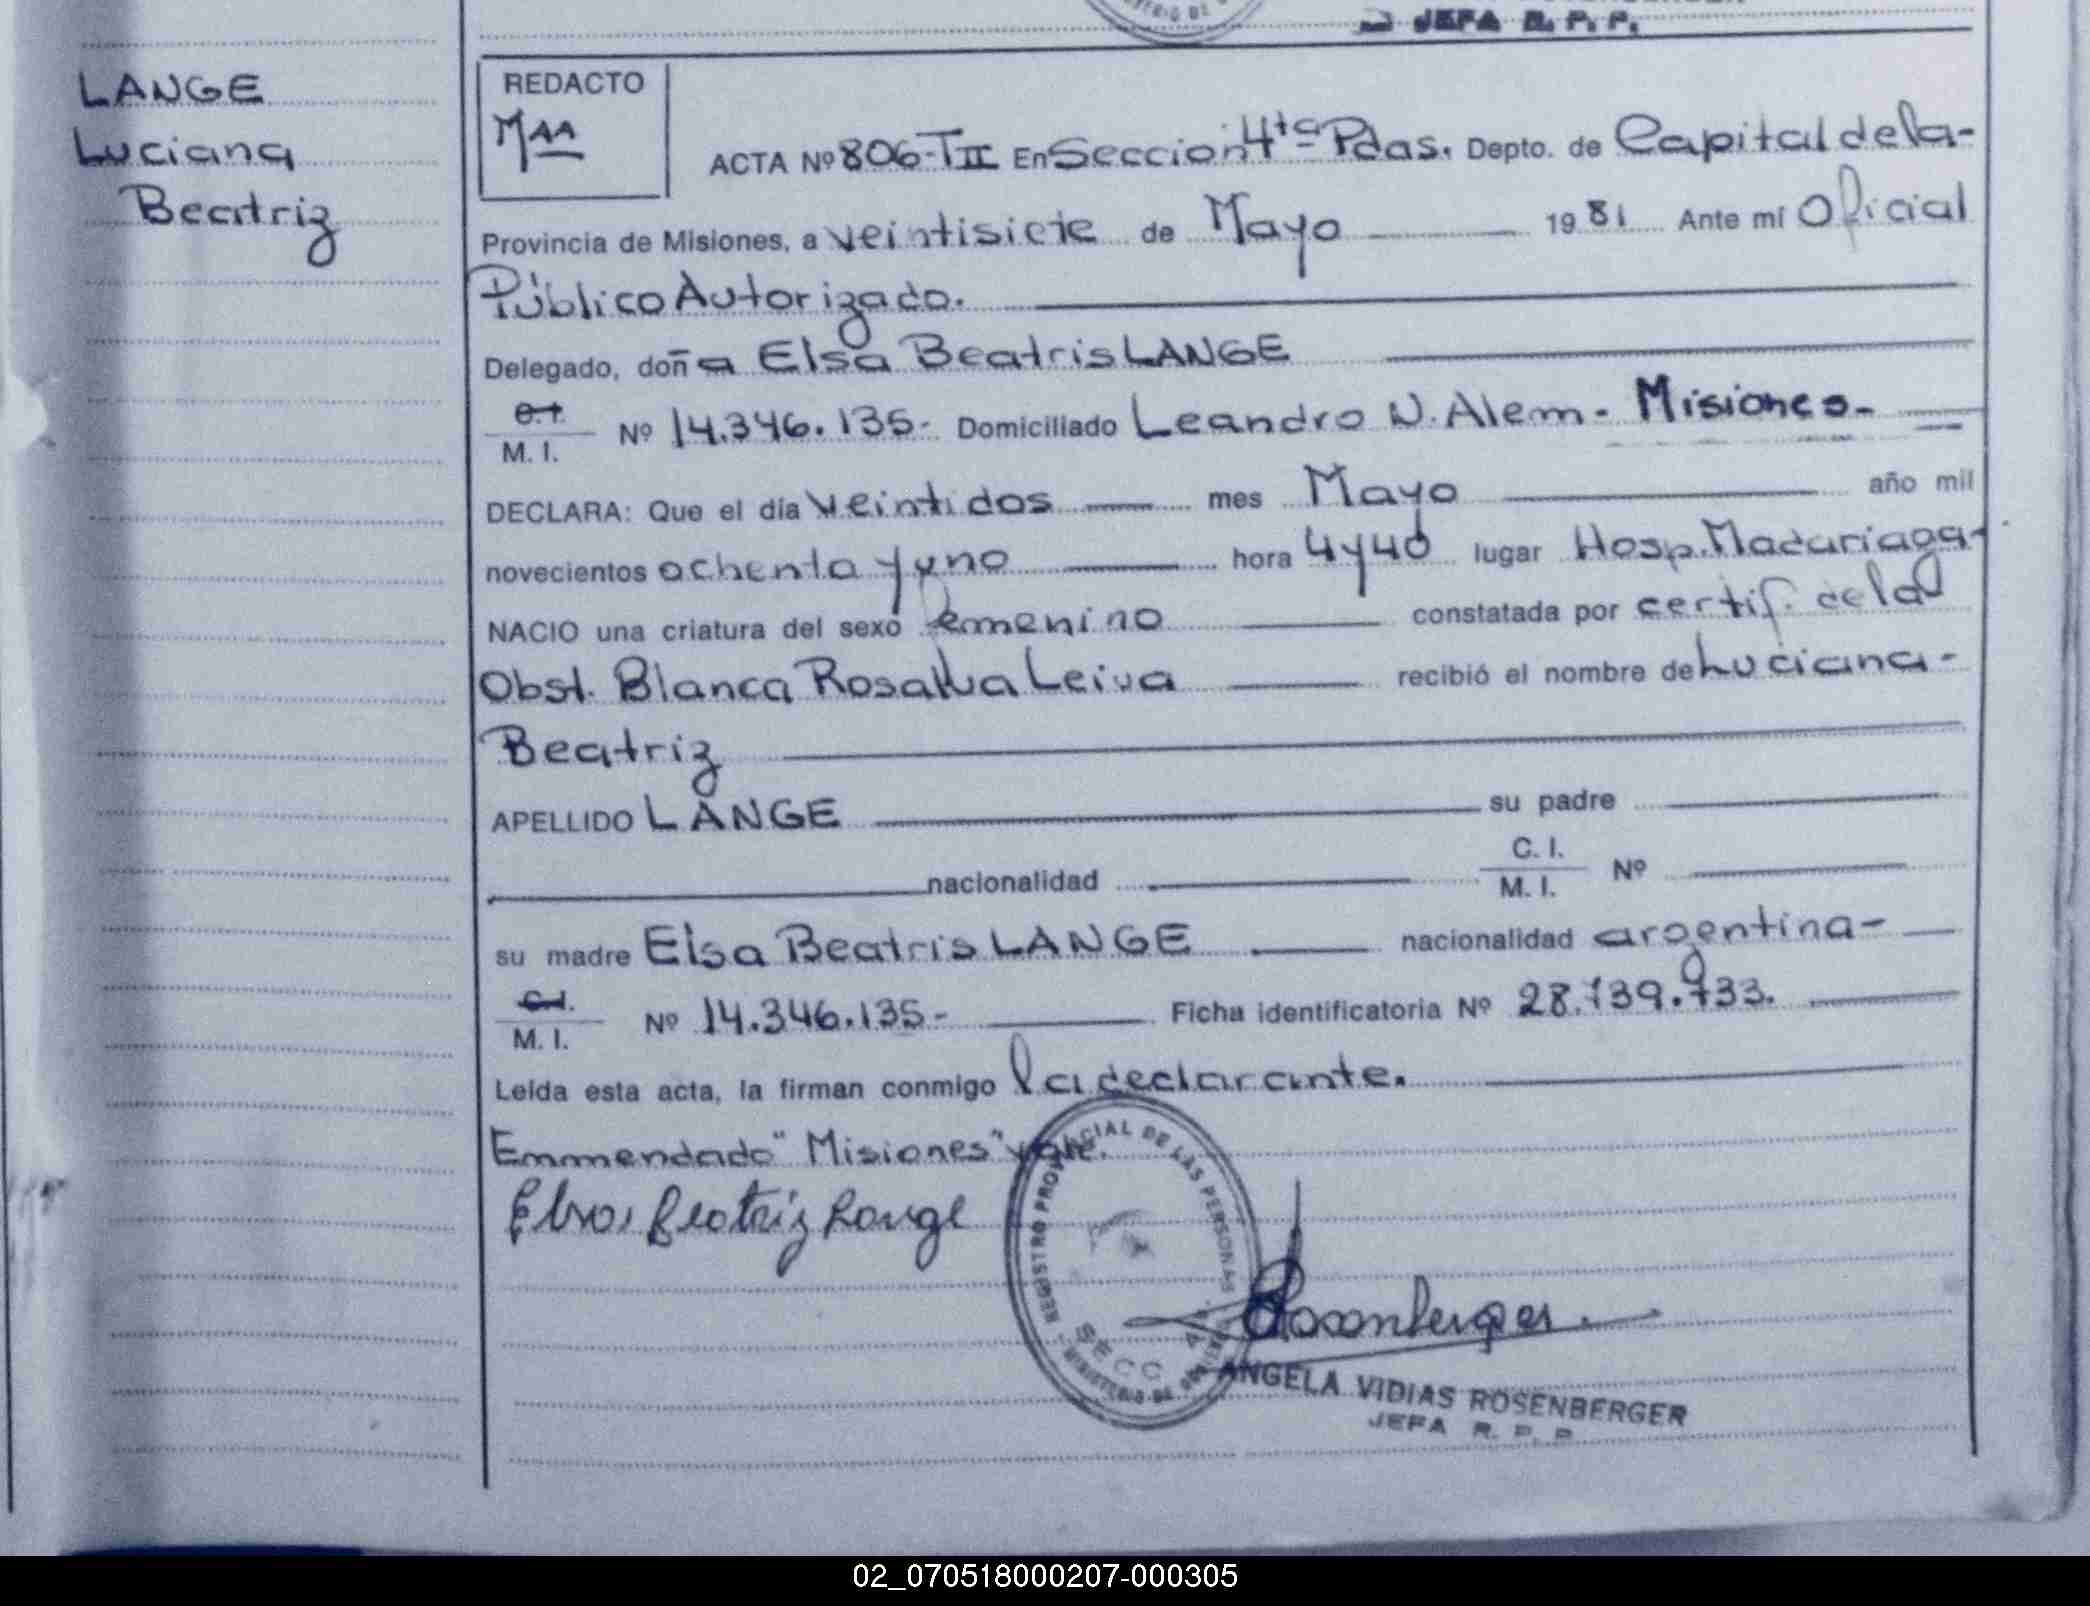 JEFA R. P. P.
LANGE
Luciana
Beatriz
REDACTO
Maa
ACTA Nº 806-TII En Seccion 4ta Pdas. Depto. de Capital de la-
Provincia de Misiones, a veintisiete de Mayo 1981 Ante mí Oficial
Público Autorizado.
Delegado, doña Elsa Beatris LANGE
C.I.
M. I. Nº 14.346.135- Domiciliado Leandro N. Alem- Misiones-
DECLARA: Que el día veintidos mes Mayo año mil
novecientos ochenta y uno hora 4y40 lugar Hosp. Madariaga-
NACIO una criatura del sexo femenino constatada por certif. de la
Obst. Blanca Rosalva Leiva recibió el nombre de Luciana-
Beatriz
APELLIDO LANGE su padre
nacionalidad C. I.
M. I. Nº
su madre Elsa Beatris LANGE nacionalidad argentina-
C.I.
M. I. Nº 14.346.135- Ficha identificatoria Nº 28.139.733.
Leída esta acta, la firman conmigo la declarante.
Emmendado "Misiones" vale.
Elsa Beatriz Lange
REGISTRO PROVINCIAL DE LAS PERSONAS
SECC. 4
MINISTERIO DE
Rosenberger
ANGELA VIDIAS ROSENBERGER
JEFA R. P. P.
02_070518000207-000305